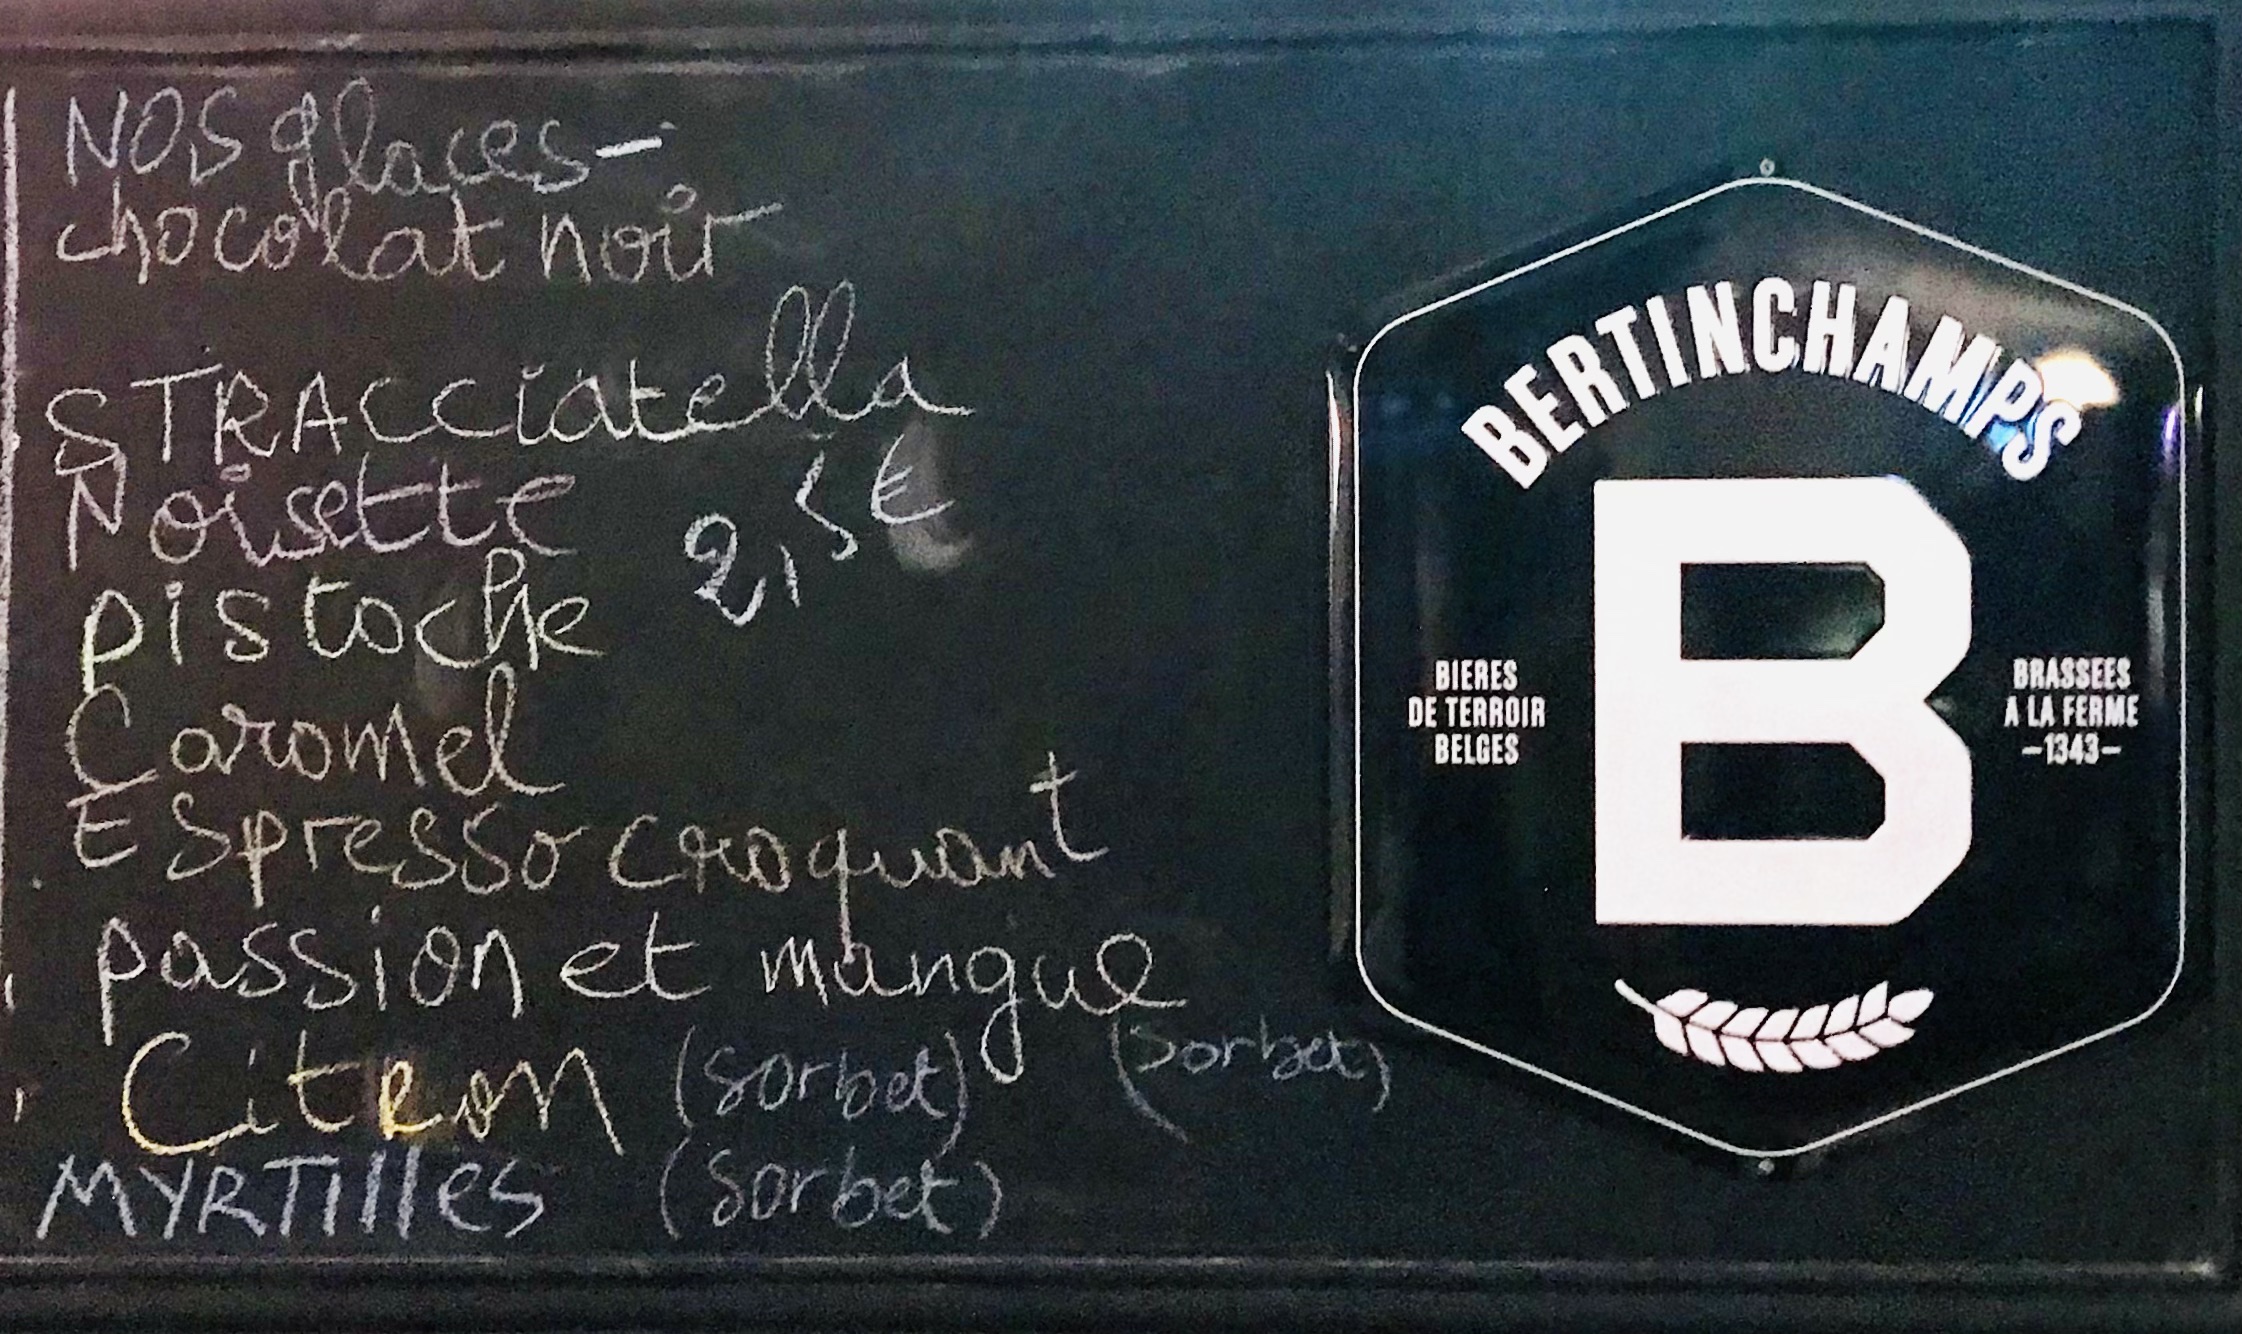 NOS glaces-
chocolat noir
STRACCiatella
Noisette 2,5€
pistache
Caramel
Espresso croquant
passion et mangue (sorbet)
Citron (sorbet)
MYRTilles (sorbet)
BERTINCHAMPS
B
BIERES
DE TERROIR
BELGES
BRASSEES
A LA FERME
-1343-